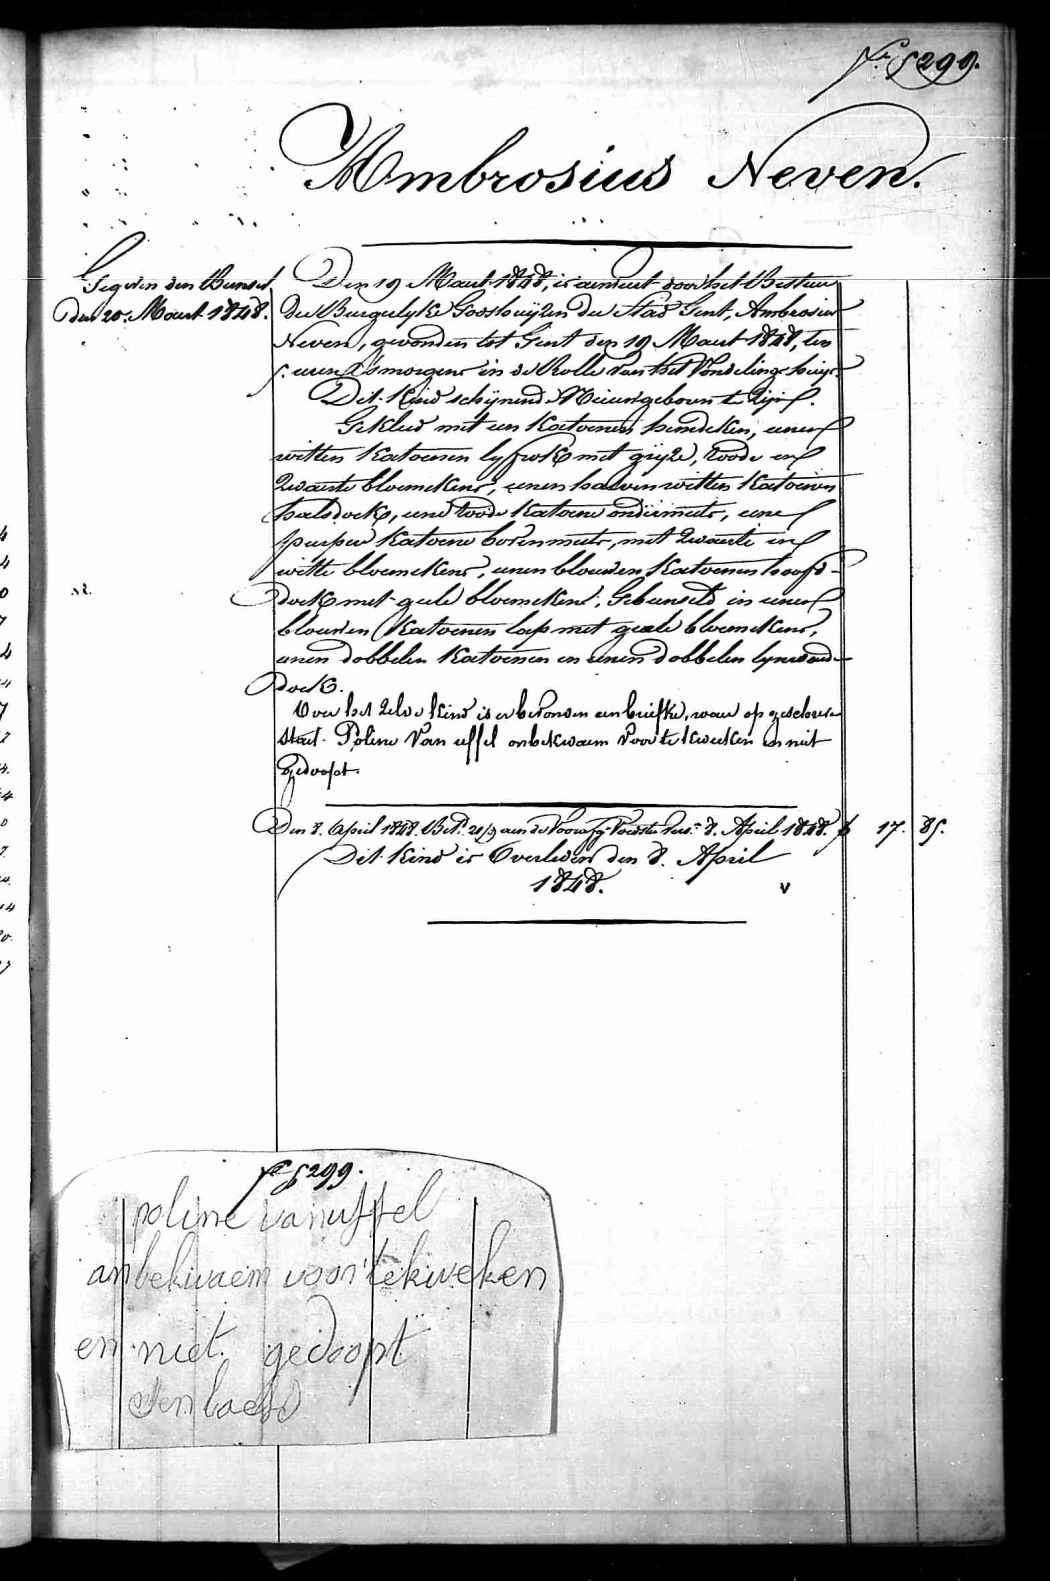 Nr. 5299.
Ambrosius Neven.
Gegeven den Bunsel
den 20n. Maart 1848.
Den 19 Maart 1848, is aenveert door het Bestuur
der Burgerlyke Godshuijzen der Stad Gent, Ambrosius
Neven, gevonden tot Gent den 19 Maart 1848, ten
5. uren 's morgens in de Rolle van het Vondelingshuijs.
Dit Kind schijnend Nieuwgeboren te Zijn.
Gekleed met een Katoenen hemdeken, eenen
witten Katoenen lyfrok met grijze, roode en
Zwarte bloemekens, eenen halven witten Katoenen
halsdoek, eene roode Katoene ondermuts, eene
purper Katoene bovenmuts, met Zwarte en
witte bloemekens, eenen blouwen Katoenen hoofd-
doek met geele bloemekens. Gebunseld in eenen
blouwen Katoenen lap met geele bloemekens,
eenen dobbelen Katoenen en eenen dobbelen lynwaed-
doek.
Over het Zelve Kind is er bevonden een briefke, waer op geschreven
staet. Poline Van uffel onbekwaem voor te kweeken en niet
gedoopt.
Den 8. April 1848. Bet. aen de Voorafg. Voedster 8. April 1848. f 17. 85.
Dit Kind is Overleden den 8. April
1848.
v
Nr 5299.
poline vanuffel
anbekwaem voor tekweken
en niet. gedoopt